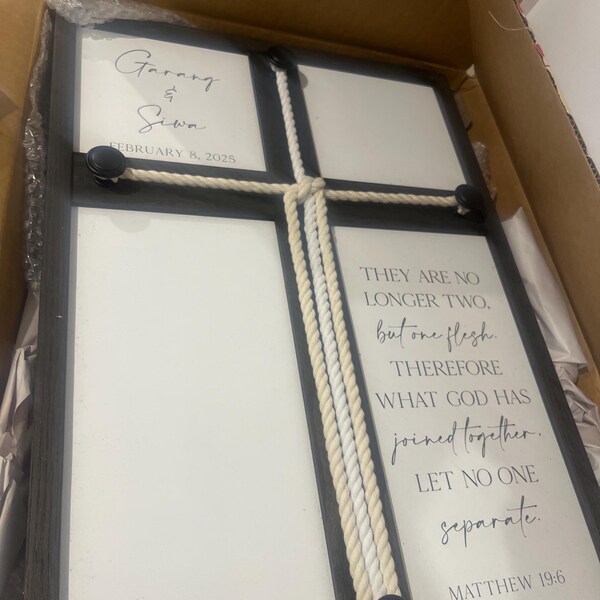 Garang
&
Siwa
FEBRUARY 8, 2025
THEY ARE NO
LONGER TWO,
but one flesh.
THEREFORE
WHAT GOD HAS
joined together,
LET NO ONE
separate.
MATTHEW 19:6